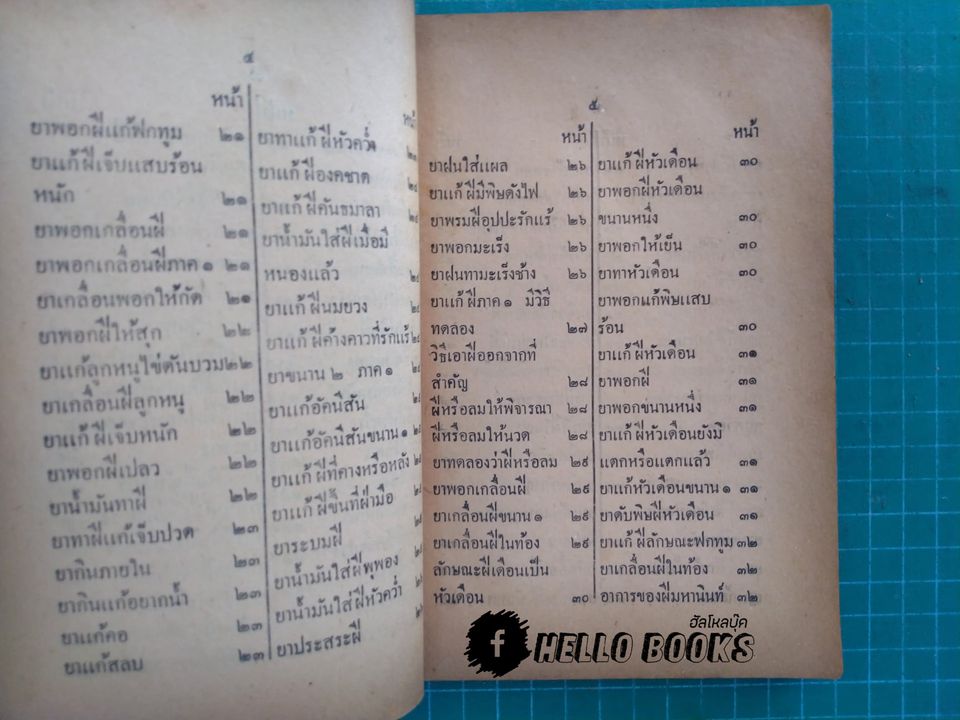 ๔
หน้า
ยาพอกฝีแก้ฟกทูม ๒๑
ยาแก้ฝีเจ็บแสบร้อน
หนัก ๒๑
ยาพอกเกลื่อนฝี ๒๑
ยาพอกเกลื่อนฝีภาค ๑ ๒๑
ยาเกลื่อนพอกให้กัด ๒๑
ยาพอกฝีให้สุก ๒๒
ยาแก้ลูกหนูไข่ดันบวม ๒๒
ยาเกลื่อนฝีลูกหนู ๒๒
ยาแก้ฝีเจ็บหนัก ๒๒
ยาพอกฝีเปลว ๒๒
ยาน้ำมันทาฝี ๒๒
ยาทาฝีแก้เจ็บปวด ๒๓
ยากินภายใน ๒๓
ยากินแก้อยากน้ำ ๒๓
ยาแก้คอ ๒๓
ยาแก้สลบ ๒๓
ยาทาแก้ฝีหัวคว่ำ
ยาแก้ฝีองคชาต
ยาแก้ฝีคันธมาลา
ยาน้ำมันใส่ฝีเมื่อมี
หนองแล้ว
ยาแก้ฝีนมยวง
ยาแก้ฝีค้างคาวที่รักแร้
ยาขนาน ๒ ภาค ๑
ยาแก้อัคนีสัน
ยาแก้อัคนีสันขนาน ๑
ยาแก้ฝีที่คางหรือหลัง
ยาแก้ฝีขึ้นที่ฝ่ามือ
ยาระบมฝี
ยาน้ำมันใส่ฝีพุพอง
ยาน้ำมันใส่ฝีหัวคว่ำ
ยาประสระฝี
๕
หน้า
ยาฝนใส่แผล ๒๖
ยาแก้ฝีมีพิษดังไฟ ๒๖
ยาพรมฝีอุปปะรักแร้ ๒๖
ยาพอกมะเร็ง ๒๖
ยาฝนทามะเร็งช้าง ๒๖
ยาแก้ฝีภาค ๑ มีวิธี
ทดลอง ๒๗
วิธีเอาฝีออกจากที่
สำคัญ ๒๘
ฝีหรือลมให้พิจารณา ๒๘
ฝีหรือลมให้นวด ๒๘
ยาทดลองว่าฝีหรือลม ๒๙
ยาพอกเกลื่อนฝี ๒๙
ยาเกลื่อนฝีขนาน ๑ ๒๙
ยาเกลื่อนฝีในท้อง ๒๙
ลักษณะฝีเดือนเป็น
หัวเดือน ๓๐
หน้า
ยาแก้ฝีหัวเดือน ๓๐
ยาพอกฝีหัวเดือน
ขนานหนึ่ง ๓๐
ยาพอกให้เย็น ๓๐
ยาทาหัวเดือน ๓๐
ยาพอกแก้พิษแสบ
ร้อน ๓๐
ยาแก้ฝีหัวเดือน ๓๑
ยาพอกฝี ๓๑
ยาพอกขนานหนึ่ง ๓๑
ยาแก้ฝีหัวเดือนยังมิ
แตกหรือแตกแล้ว ๓๑
ยาแก้หัวเดือนขนาน ๑ ๓๑
ยาดับพิษฝีหัวเดือน ๓๑
ยาแก้ฝีลักษณะฟกทูม ๓๒
ยาเกลื่อนฝีในท้อง ๓๒
อาการของฝีมหานินท์ ๓๒
ฮัลโหลบุ๊ค
HELLO BOOKS